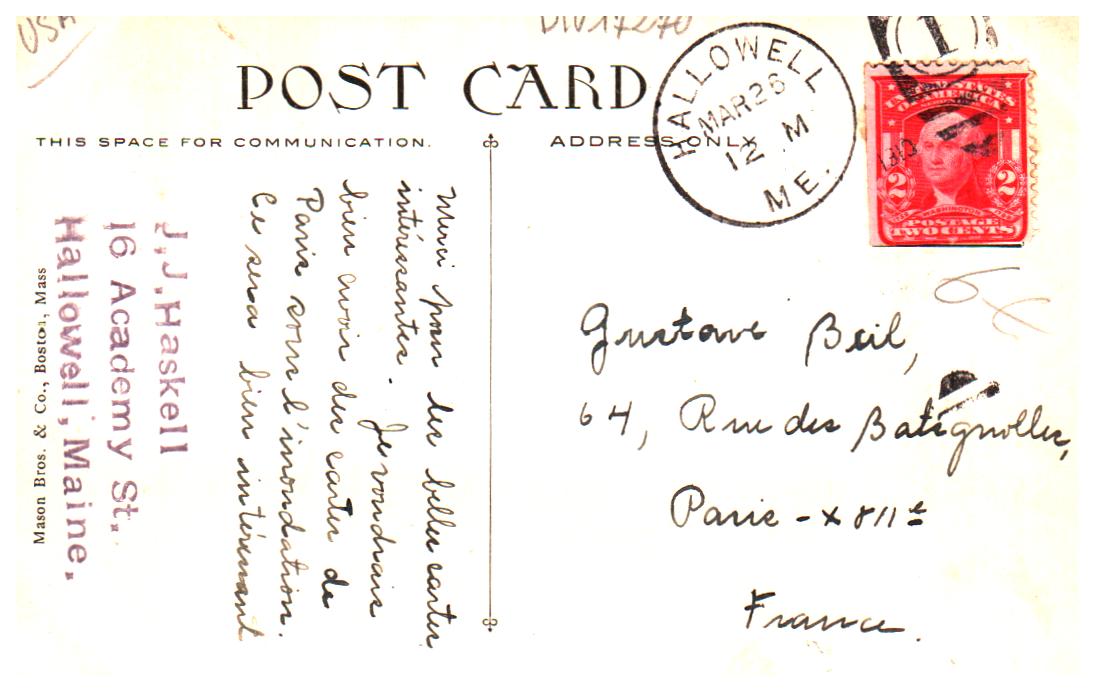 USA
DIV17270
POST CARD
THIS SPACE FOR COMMUNICATION.
ADDRESS ONLY
HALLOWELL
MAR 26
12 M
ME.
1910
1
UNITED STATES
OF AMERICA
2 2
WASHINGTON
POSTAGE
TWO CENTS
Merci pour les belles cartes
intéressantes. Je voudrais
bien avoir des cartes de
Paris sous l'inondation.
Ce sera bien intéressant
J.J. Haskell
16 Academy St.
Hallowell, Maine.
Mason Bros. & Co., Boston, Mass
Gustave Beil,
64, Rue des Batignolles,
Paris - XVIIe
France.